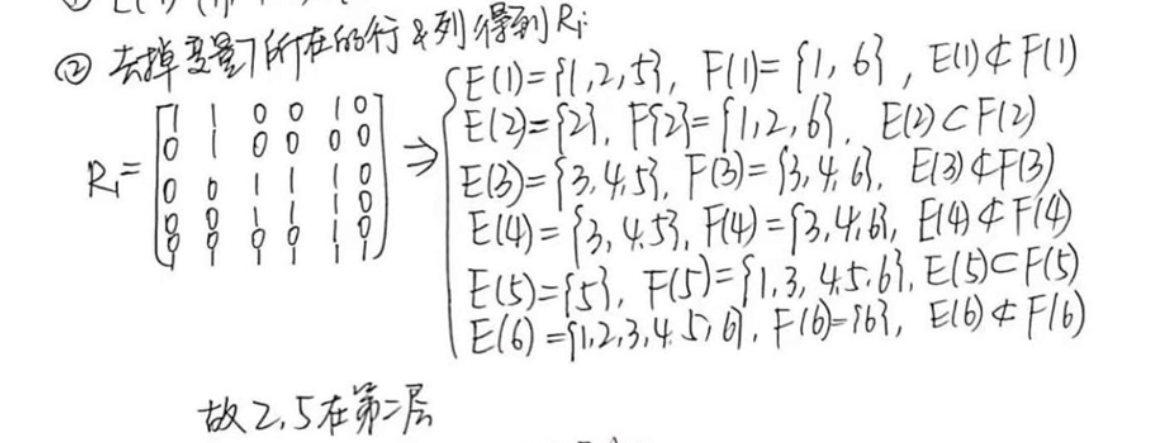 ② 去掉变量7所在的行&列得到R₁:
R₁= [1 1 0 0 1 0
0 1 0 0 0 0
0 0 1 1 1 0
0 0 1 1 1 0
0 0 0 0 1 0
1 1 1 1 1 1] ⇒
E(1)={1,2,5}, F(1)={1,6}, E(1)⊄F(1)
E(2)={2}, F{2}={1,2,6}, E(2)⊂F(2)
E(3)={3,4,5}, F(3)={3,4,6}, E(3)⊄F(3)
E(4)={3,4,5}, F(4)={3,4,6}, E(4)⊄F(4)
E(5)={5}, F(5)={1,3,4,5,6}, E(5)⊂F(5)
E(6)={1,2,3,4,5,6}, F(6)={6}, E(6)⊄F(6)
故2,5在第二层